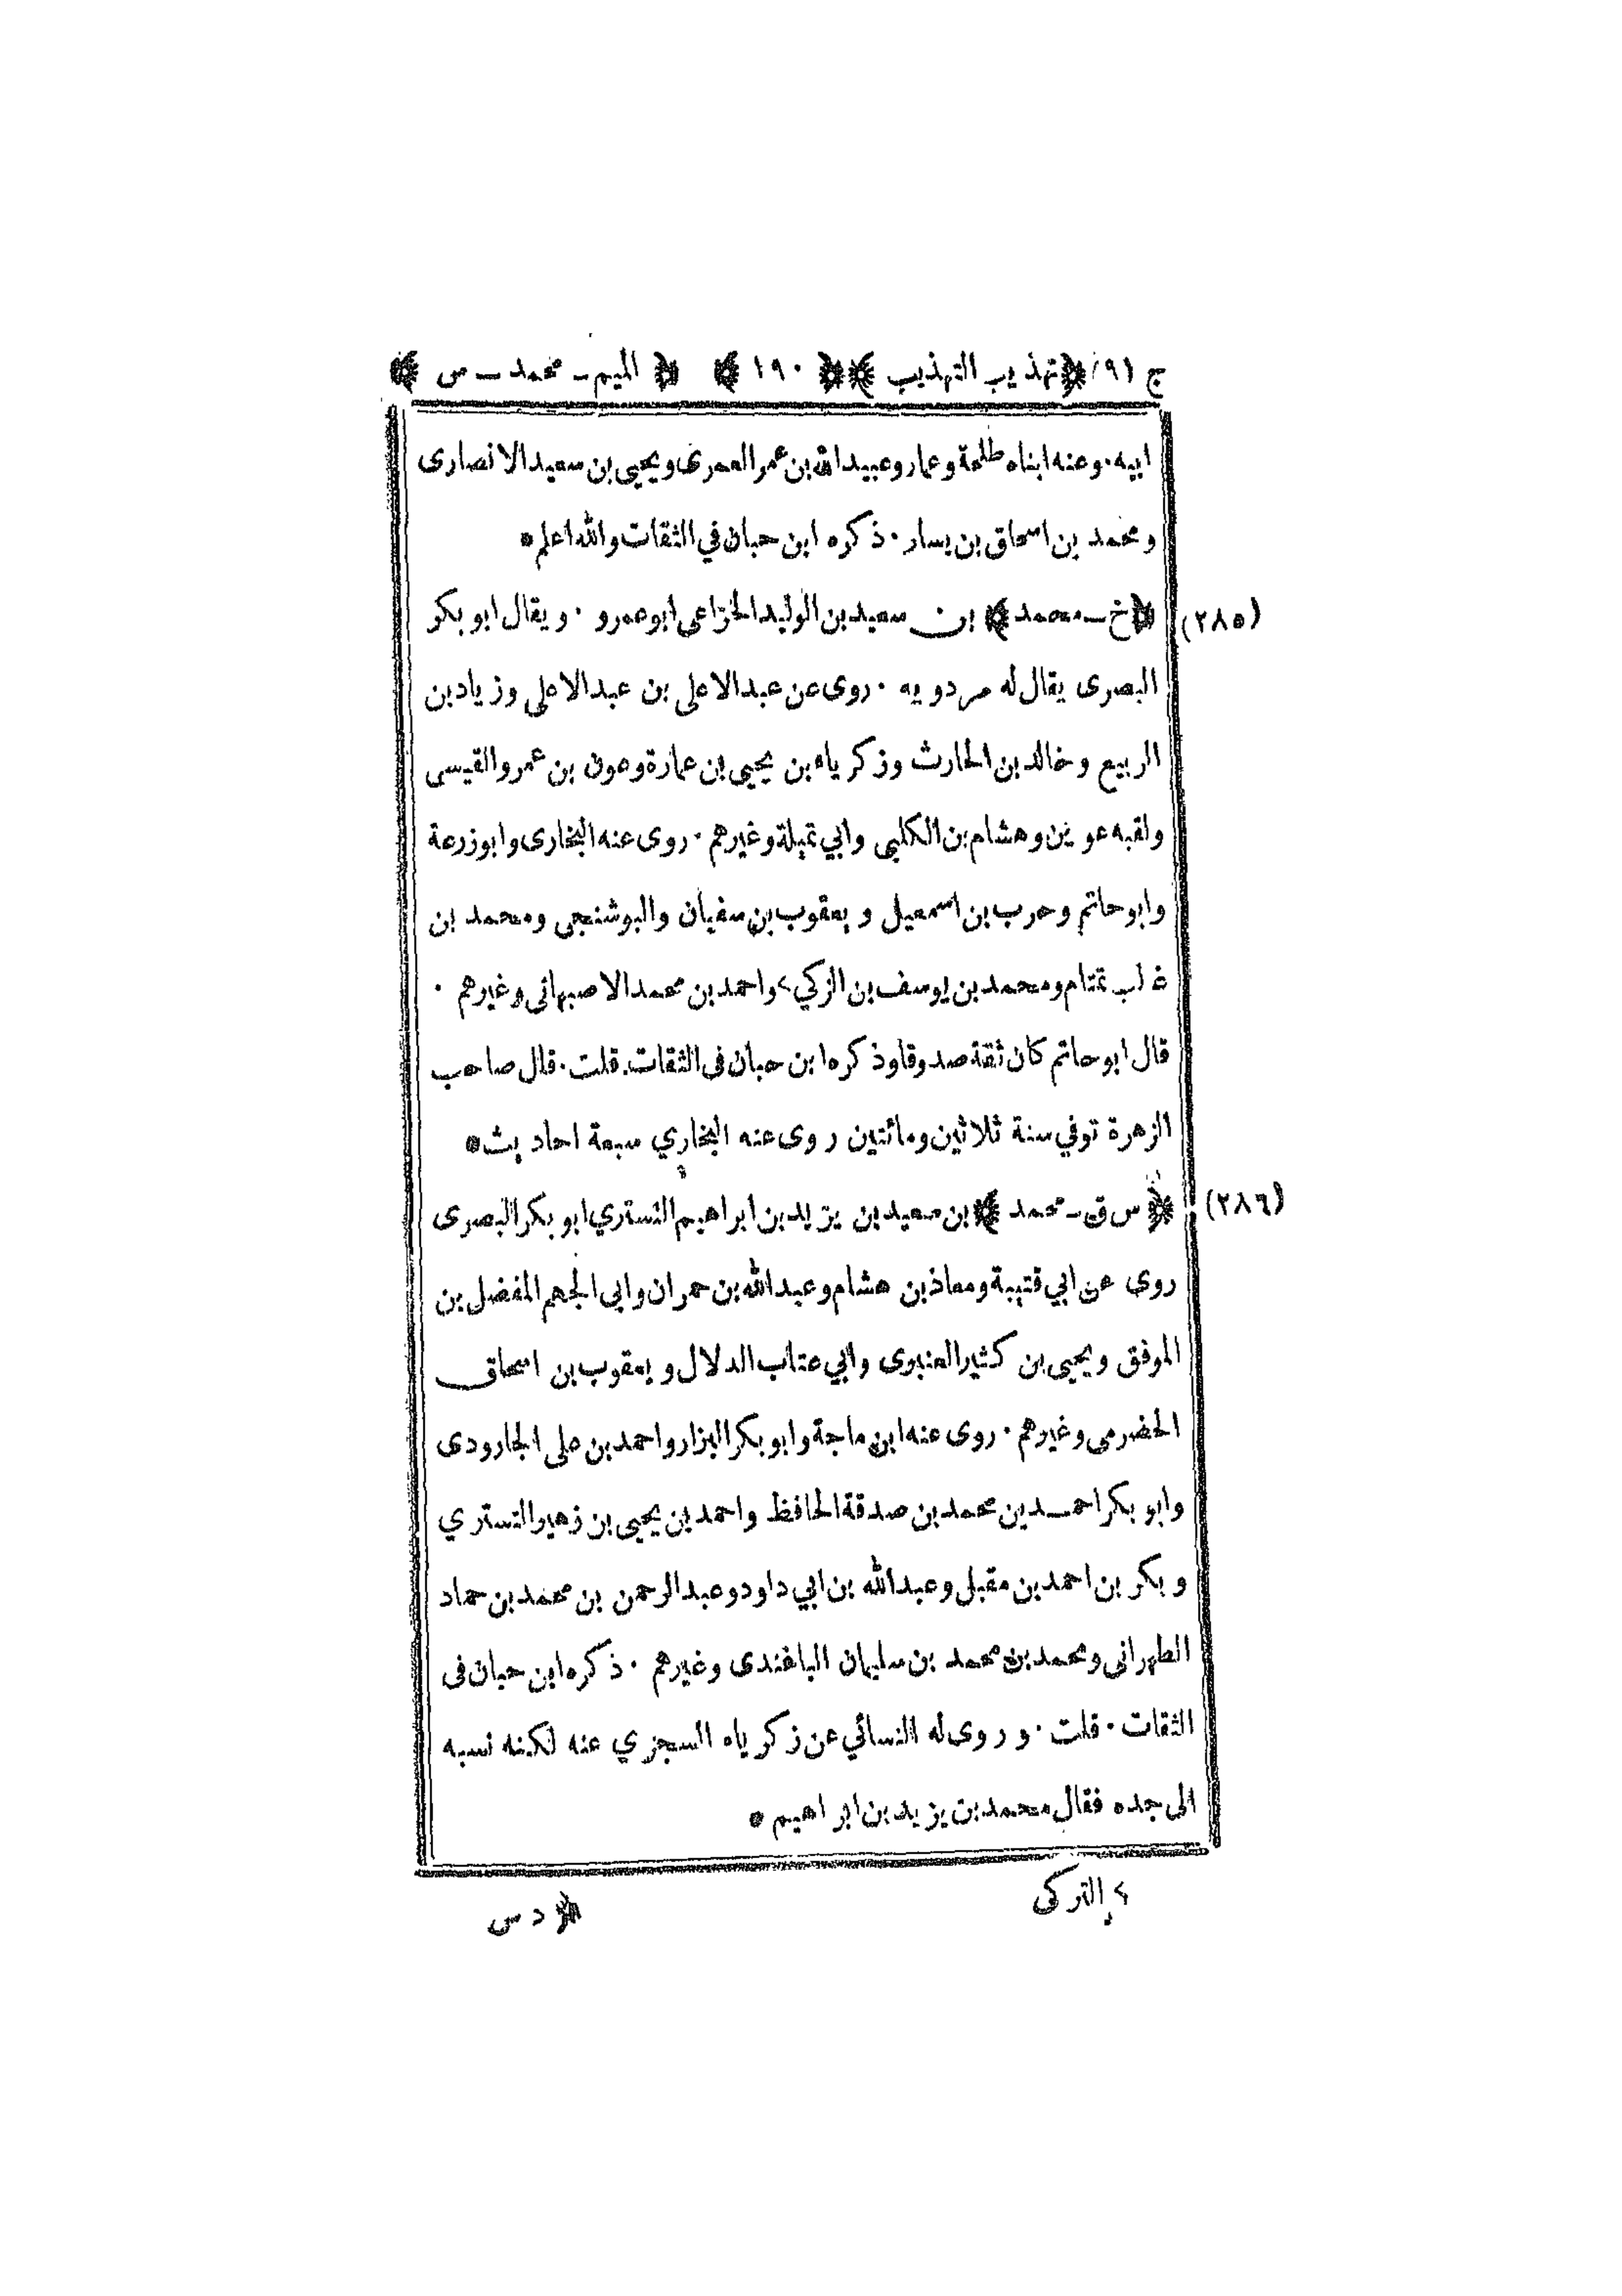 ج ٩ ﴿تهذيب التهذيب﴾ ﴿١٩٠﴾ ﴿الميم ـ محمد ـ س﴾
ابيه ٠ وعنه ابناه طلحة وعمار وعبيد الله بن عمر العمرى ويحيى بن سعيد الانصارى
ومحمد بن اسحاق بن يسار ٠ ذكره ابن حبان في الثقات والله اعلم *
(٢٨٥) ﴿خ ـ محمد﴾ بن سعيد بن الوليد الخزاعى ابو عمرو ٠ ويقال ابو بكر
البصرى يقال له مردويه ٠ روى عن عبد الاعلى بن عبد الاعلى وزياد بن
الربيع وخالد بن الحارث وزكرياء بن يحيى بن عمارة وعون بن عمرو القيسى
ولقبه عوين وهشام بن الكلبى وابي تميلة وغيرهم ٠ روى عنه البخارى وابو زرعة
وابو حاتم وحرب بن اسمعيل ويعقوب بن سفيان والبوشنجى ومحمد بن
غالب تمتام ومحمد بن يوسف بن الزكي ٢ واحمد بن محمد الاصبهانى وغيرهم ٠
قال ابو حاتم كان ثقة صدوقا وذكره ابن حبان فى الثقات ٠ قلت ٠ قال صاحب
الزهرة توفي سنة ثلاثين ومائتين روى عنه البخاري سبعة احاديث *
(٢٨٦) ﴿س ق ـ محمد﴾ بن سعيد بن يزيد بن ابراهيم التستري ابو بكر البصرى
روى عن ابي قتيبة ومعاذ بن هشام وعبد الله بن حمران وابى الجهم المفضل بن
الموفق ويحيى بن كثير العنبرى وابي عتاب الدلال ويعقوب بن اسحاق
الحضرمى وغيرهم ٠ روى عنه ابن ماجة وابو بكر البزار واحمد بن على الجارودى
وابو بكر احمد بن محمد بن صدقة الحافظ واحمد بن يحيى بن زهير التستري
وبكر بن احمد بن مقبل وعبد الله بن ابي داود وعبد الرحمن بن محمد بن حماد
الطهرانى ومحمد بن محمد بن سليمان الباغندى وغيرهم ٠ ذكره ابن حبان فى
الثقات ٠ قلت ٠ وروى له النسائي عن زكرياء السجزي عنه لكنه نسبه
الى جده فقال محمد بن يزيد بن ابراهيم *
٢ التركى
﴿د س